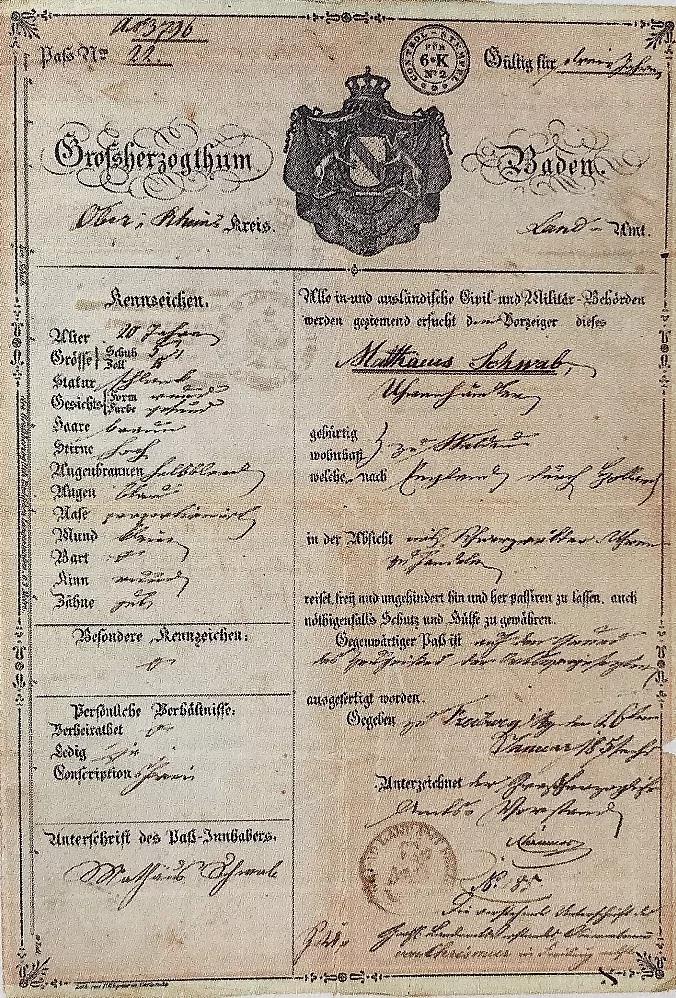 No 3796
Paß Nro 22.
CONTROL-STEMPEL
FÜR
6·K
No 2
Gültig für drei Jahre
Großherzogthum
Baden.
Ober-Rhein Kreis.
Land- Amt.
Kennzeichen.
Alter 20 Jahre
Grösse Schuh 5
Zoll
Statur schlank
Gesichts Form rund
Farbe gesund
Haare braun
Stirne hoch
Augenbrauen hellblond
Augen blau
Nase proportionirt
Mund klein
Bart
Kinn rund
Zähne gut
Besondere Kennzeichen:
Persönliche Verhältnisse:
Verheirathet
Ledig ja
Conscription frei
Unterschrift des Paß-Innhabers.
Mathäus Schwab
Alle in-und ausländische Civil-und Militär-Behörden
werden geziemend ersucht dem Vorzeiger dieses
Mathaeus Schwab,
Uhrenhändler
gebürtig
wohnhaft zu Waldau
welche, nach England durch Holland
in der Absicht mit Schwarzwälder Uhren
zu handeln
reiset, frei und ungehindert hin und her passiren zu lassen, auch
nöthigenfalls Schutz und Hülfe zu gewähren.
Gegenwärtiger Paß ist auf den Grund
des
ausgefertigt worden.
Gegeben zu Freiburg den
Januar 18
Unterzeichnet der Großherzogliche
Amts-Vorstand
No 85
Die vorstehende Unterschrift des